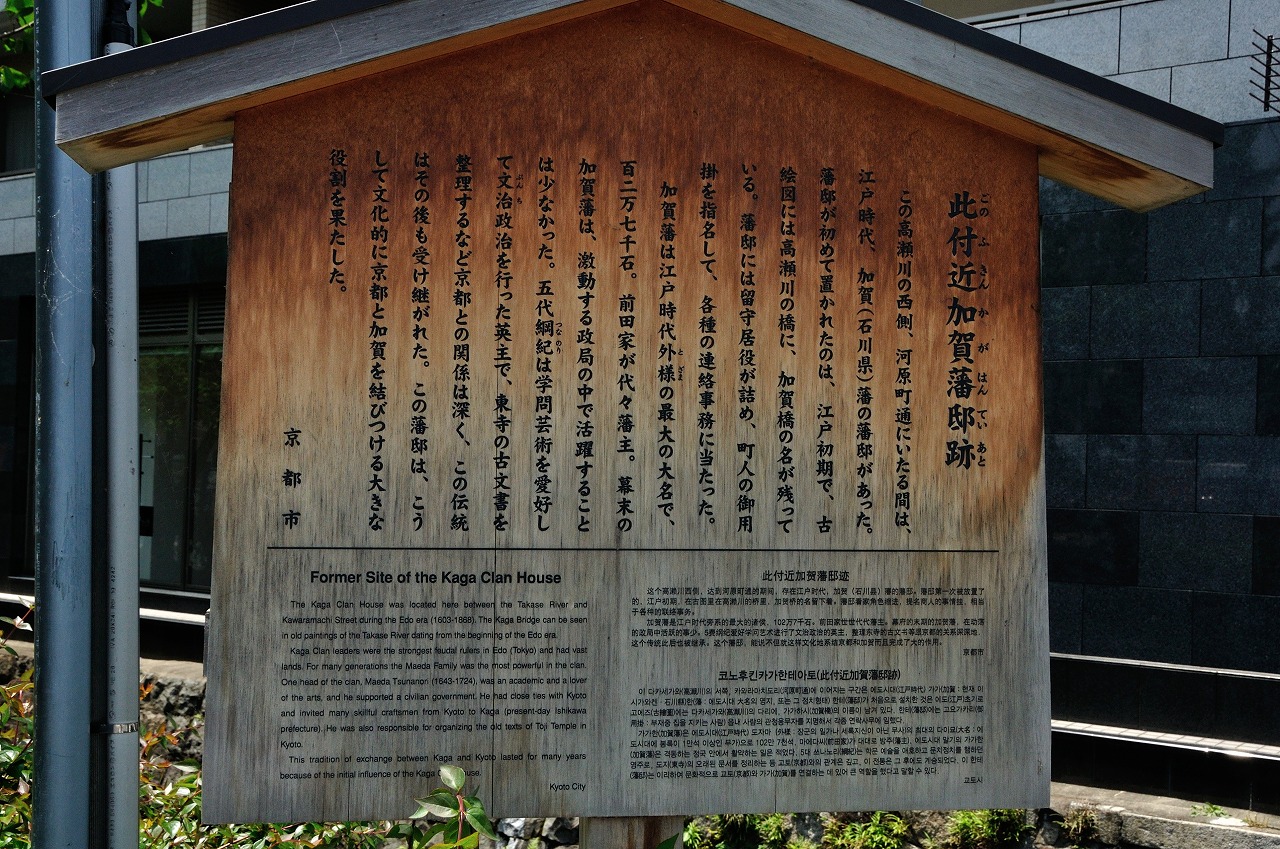 此付近加賀藩邸跡
このふきんかがはんていあと
この高瀬川の西側、河原町通にいたる間は、
江戸時代、加賀(石川県)藩の藩邸があった。
藩邸が初めて置かれたのは、江戸初期で、古
絵図には高瀬川の橋に、加賀橋の名が残って
いる。藩邸には留守居役が詰め、町人の御用
掛を指名して、各種の連絡事務に当たった。
加賀藩は江戸時代外様の最大の大名で、
とざま
百二万七千石。前田家が代々藩主。幕末の
加賀藩は、激動する政局の中で活躍すること
は少なかった。五代綱紀は学問芸術を愛好し
つなのり
て文治政治を行った英主で、東寺の古文書を
ぶんち
整理するなど京都との関係は深く、この伝統
はその後も受け継がれた。この藩邸は、こう
して文化的に京都と加賀を結びつける大きな
役割を果たした。
京都市
Former Site of the Kaga Clan House
The Kaga Clan House was located here between the Takase River and
Kawaramachi Street during the Edo era (1603-1868). The Kaga Bridge can be seen
in old paintings of the Takase River dating from the beginning of the Edo era.
Kaga Clan leaders were the strongest feudal rulers in Edo (Tokyo) and had vast
lands. For many generations the Maeda Family was the most powerful in the clan.
One head of the clan, Maeda Tsunanori (1643-1724), was an academic and a lover
of the arts, and he supported a civilian government. He had close ties with Kyoto
and invited many skillful craftsmen from Kyoto to Kaga (present-day Ishikawa
prefecture). He was also responsible for organizing the old texts of Toji Temple in
Kyoto.
This tradition of exchange between Kaga and Kyoto lasted for many years
because of the initial influence of the Kaga C use.
Kyoto City
此付近加贺藩邸迹
这个高濑川西侧，达到河原町通的期间，存在江户时代，加贺（石川县）藩的藩邸。藩邸第一次被放置了
的，江户初期，在古图里在高濑川的桥里，加贺桥的名留下着。
于各种的联络事务。
加贺藩是江户时代旁系的最大的诸侯，102万7千石。前田家世世代代藩主。幕府的末期的加贺藩，在动荡
的政局中活跃的事少。5费纲纪爱好学问艺术进行了文治政治的英主，整理东寺的古文书等道京都的关系深深地，
这个传统此后也被继承。这个藩邸，能说不但就这样文化地系结京都和加贺而且完成了大的作用。
京都市
코노후킨카가한테이아토(此付近加賀藩邸跡)
이 다카세가와(高瀬川)의 서쪽, 카와라마치도리(河原町通)에 이어지는 구간은 에도시대(江戸時代) 가가(加賀 : 현재 이
교토시